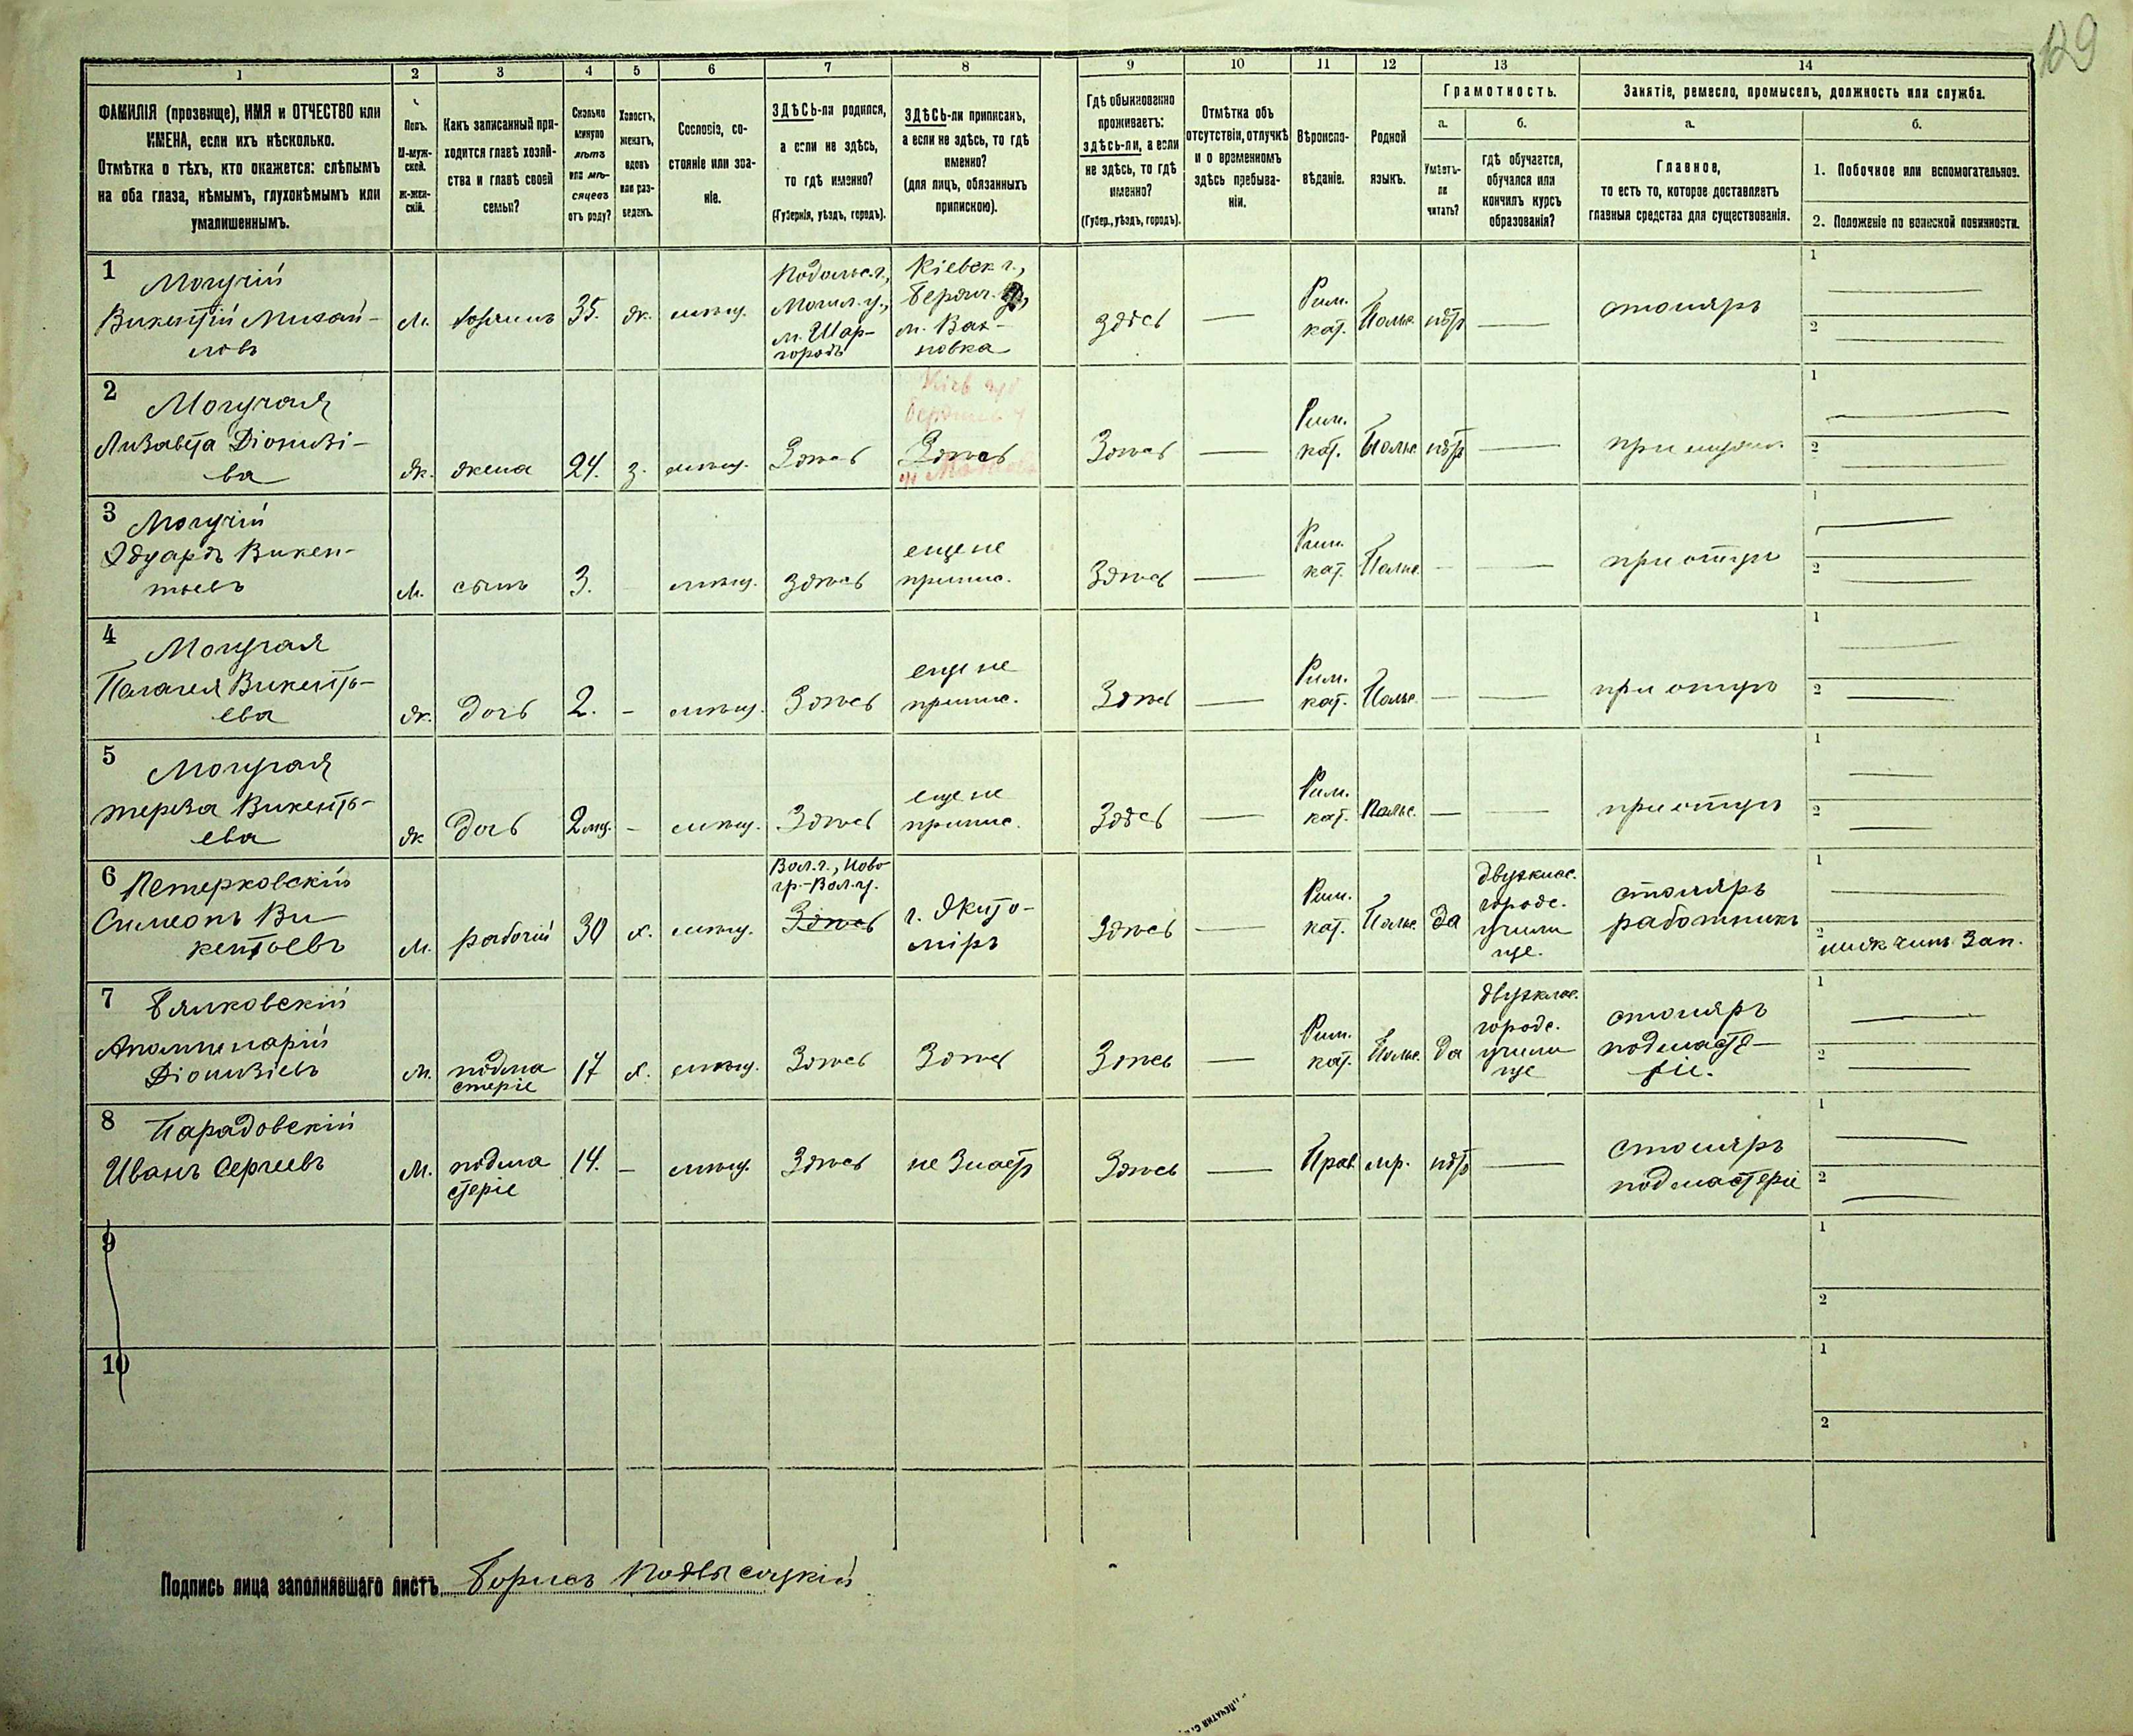 129
1 2 3 4 5 6 7 8 9 10 11 12 13 14
ФАМИЛІЯ (прозвище), ИМЯ и ОТЧЕСТВО или
ИМЕНА, если ихъ нѣсколько.
Отмѣтка о тѣхъ, кто окажется: слѣпымъ
на оба глаза, нѣмымъ, глухонѣмымъ или
умалишеннымъ.
Полъ.
М-муж-
ской.
ж-жен-
скій.
Какъ записанный при-
ходится главѣ хозяй-
ства и главѣ своей
семьи?
Сколько
минуло
лѣтъ
или мѣ-
сяцевъ
отъ роду?
Холостъ,
женатъ,
вдовъ
или раз-
веденъ.
Сословіе, со-
стояніе или зва-
ніе.
ЗДѢСЬ-ли родился,
а если не здѣсь,
то гдѣ именно?
(Губернія, уѣздъ, городъ).
ЗДѢСЬ-ли приписанъ,
а если не здѣсь, то гдѣ
именно?
(для лицъ, обязанныхъ
припискою).
Гдѣ обыкновенно
проживаетъ:
здѣсь-ли, а если
не здѣсь, то гдѣ
именно?
(Губер., уѣздъ, городъ).
Отмѣтка объ
отсутствіи, отлучкѣ
и о временномъ
здѣсь пребыва-
ніи.
Вѣроиспо-
вѣданіе.
Родной
языкъ.
Грамотность.
а.
Умѣетъ-
ли
читать?
б.
гдѣ обучается,
обучался или
кончилъ курсъ
образованія?
Занятіе, ремесло, промыселъ, должность или служба.
а.
Главное,
то есть то, которое доставляетъ
главныя средства для существованія.
б.
1. Побочное или вспомогательное.
2. Положеніе по воинской повинности.
1
Могучій
Викентій Михай-
ловъ
м.
хозяинъ
35.
ж.
мѣщ.
Подольс. г.,
Могил. у.,
м. Шар-
городъ
Кіевск г.,
Бердич. у,
м. Вах-
новка
здѣсь
—
Рим.
кат.
Польс.
нѣтъ
—
столяръ
1
2
2
Могучая
Лизавета Діонизі-
ва
ж.
жена
24.
з.
мѣщ.
Здѣсь
Здѣсь
Здѣсь
—
Рим.
кат.
Польс.
нѣтъ
—
при мужѣ
1
2
3
Могучій
Эдуардъ Викен-
тьевъ
м.
сынъ
3.
мѣщ.
здѣсь
еще не
припис.
Здѣсь
—
Рим.
кат.
Польс.
—
—
при отцѣ
1
2
4
Могучая
Пелагея Викентъ-
ева
ж.
дочь
2.
-
мѣщ.
Здѣсь
еще не
припис.
Здѣсь
—
Рим.
кат.
Польс.
—
—
при отцѣ
1
2
5
Могучая
тереза Викентъ-
ева
ж
дочь
2 мц.
-
мѣщ.
Здѣсь
еще не
припис.
Здѣсь
—
Рим.
кат.
Польс.
—
—
при отцѣ
1
2
6
Петерковскій
Симеонъ Ви-
кентьевъ
м.
рабочій
30
х.
мѣщ.
Вол. г., Ново-
гр.-Вол. у.
Здѣсь
г. Жито-
міръ
здѣсь
—
Рим.
кат.
Польс.
да
двухклас.
городс.
учили
ще.
столяръ
работникъ
1
2
нижн чинъ Зап.
7
Бялковскій
Аполлинарій
Діонизіевъ
м.
подма
стеріе
17
х.
мѣщ.
Здѣсь
Здѣсь
Здѣсь
—
Рим.
кат.
Польс.
да
двухклас.
городс.
учили
ще
столяръ
подмасте-
ріе.
1
2
8
Парадовскій
Иванъ Сергѣевъ
м.
подма
стеріе
14.
-
мѣщ.
Здѣсь
не Знаетъ
Здѣсь
—
Прав.
мр.
нѣтъ
—
столяръ
подмастеріе
1
2
9
1
2
10
1
2
Подпись лица заполнявшаго листъ Борисъ Подвысоцкій